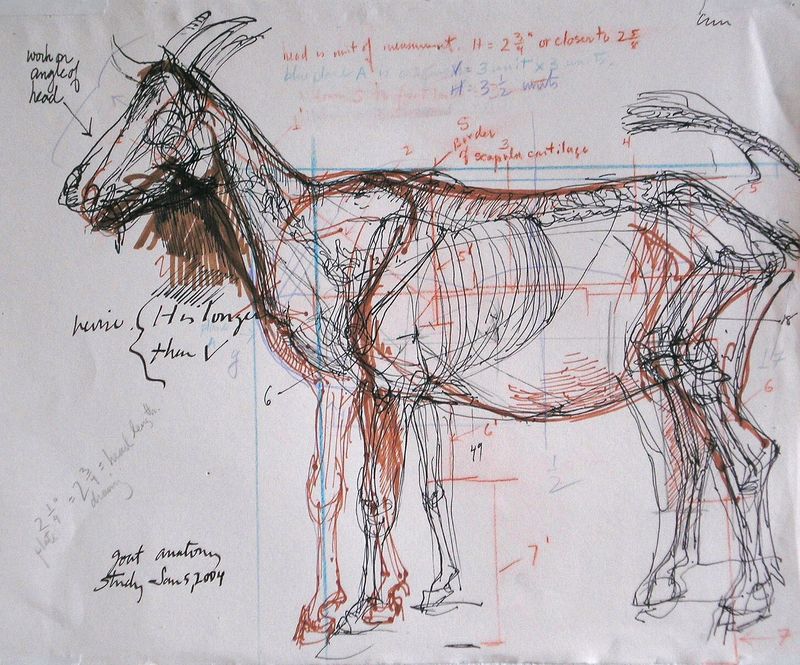 work on
angle of
head
head is unit of measurement. H = 2 3/4" or closer to 2 5/8
V = 3 unit x 3 units.
H = 3 1/2 units
1'
2
S
Border
of scapula cartilage
3
4
5
5'
revise { H is longer
than V
6
6
6'
49
1/2
7'
18
17
7
2 1/4" = 2 3/4" = head length
plate
drawing
goat anatomy
Study - Jan 5, 2004